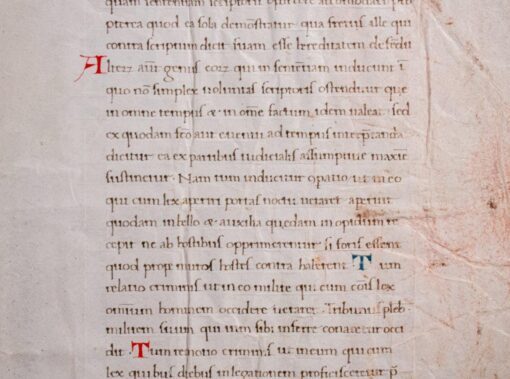 pterea quod ea sola demonstratur qua fretus alle qui
contra scriptum dicit suam esse hereditatem defendit
Alterũ aut̃ genus eorũ qui in sententiam inducunt ĩ
quo nõ simplex voluntas scriptoris ostenditur que
in omne tempus & in om̃e factum idem valeat sed
ex quodam fc̃o aut euentu ad tempus interp̃tanda
dicitur ea ex partibus iudicialis assumptiue maxim̃
sustinetur. Nam tum inducitur cp̃atio ut in eo
qui cum lex aperiri portas noctu uetaret aperuit
quodam in bello & auxilia quedam in opidum re
cepit ne ab hostibus opprimerentur si foris essent
quod prope muros hostes castra haberent. Tum
relatio criminis ut in eo milite qui cum cõis lex
omnium hominem occidere uetaret Tribunũ pleb̃
militum suum qui uim sibi inferre conaretur occi
dit. Tum remotio criminis ut in eum qui cum
lex quibus diebus in legationem proficisceretur p̃